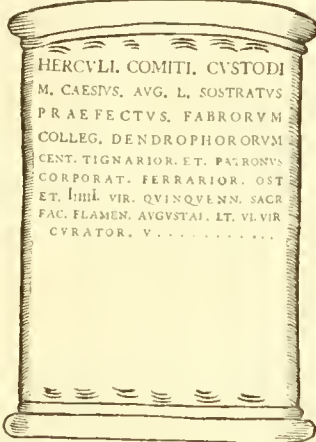 HERCVLI. COMITI. CVSTODI
M. CAESIVS. AVG. L. SOSTRATVS
PRAEFECTVS. FABRORVM
COLLEG. DENDROPHORORVM
CENT. TIGNARIOR. ET. PATRONVS
CORPORAT. FERRARIOR. OST
ET. IIIIII. VIR. QVINQVENN. SACR
FAC. FLAMEN. AVGVSTAL. ET. VI. VIR
CVRATOR. V . . . . . . . . . . .